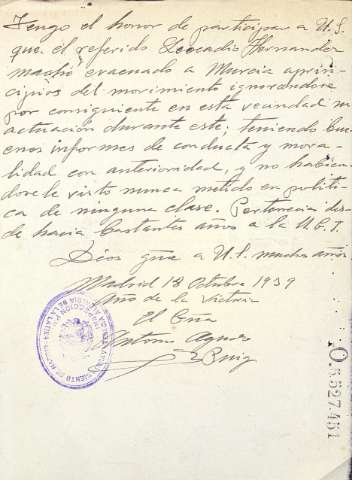 Tengo el honor de participar a U.S.
que el referido Leocadio Hernandez
marchó evacuado a Murcia aprin-
cipios del movimiento ignorandose
por consiguiente en esta vecindad su
actuación durante este; teniendo bue
enos informes de conducta y mora-
lidad con anterioridad, y no habien
dose le visto nunca metido en politi-
ca de ninguna clase. Pertenecia des-
de hacia bastantes años a la U.G.T.
Dios gue a U.S. muchos años
Madrid 18 Octubre 1939
Año de la Victoria
El
Antonio
Puig
O.5527.451